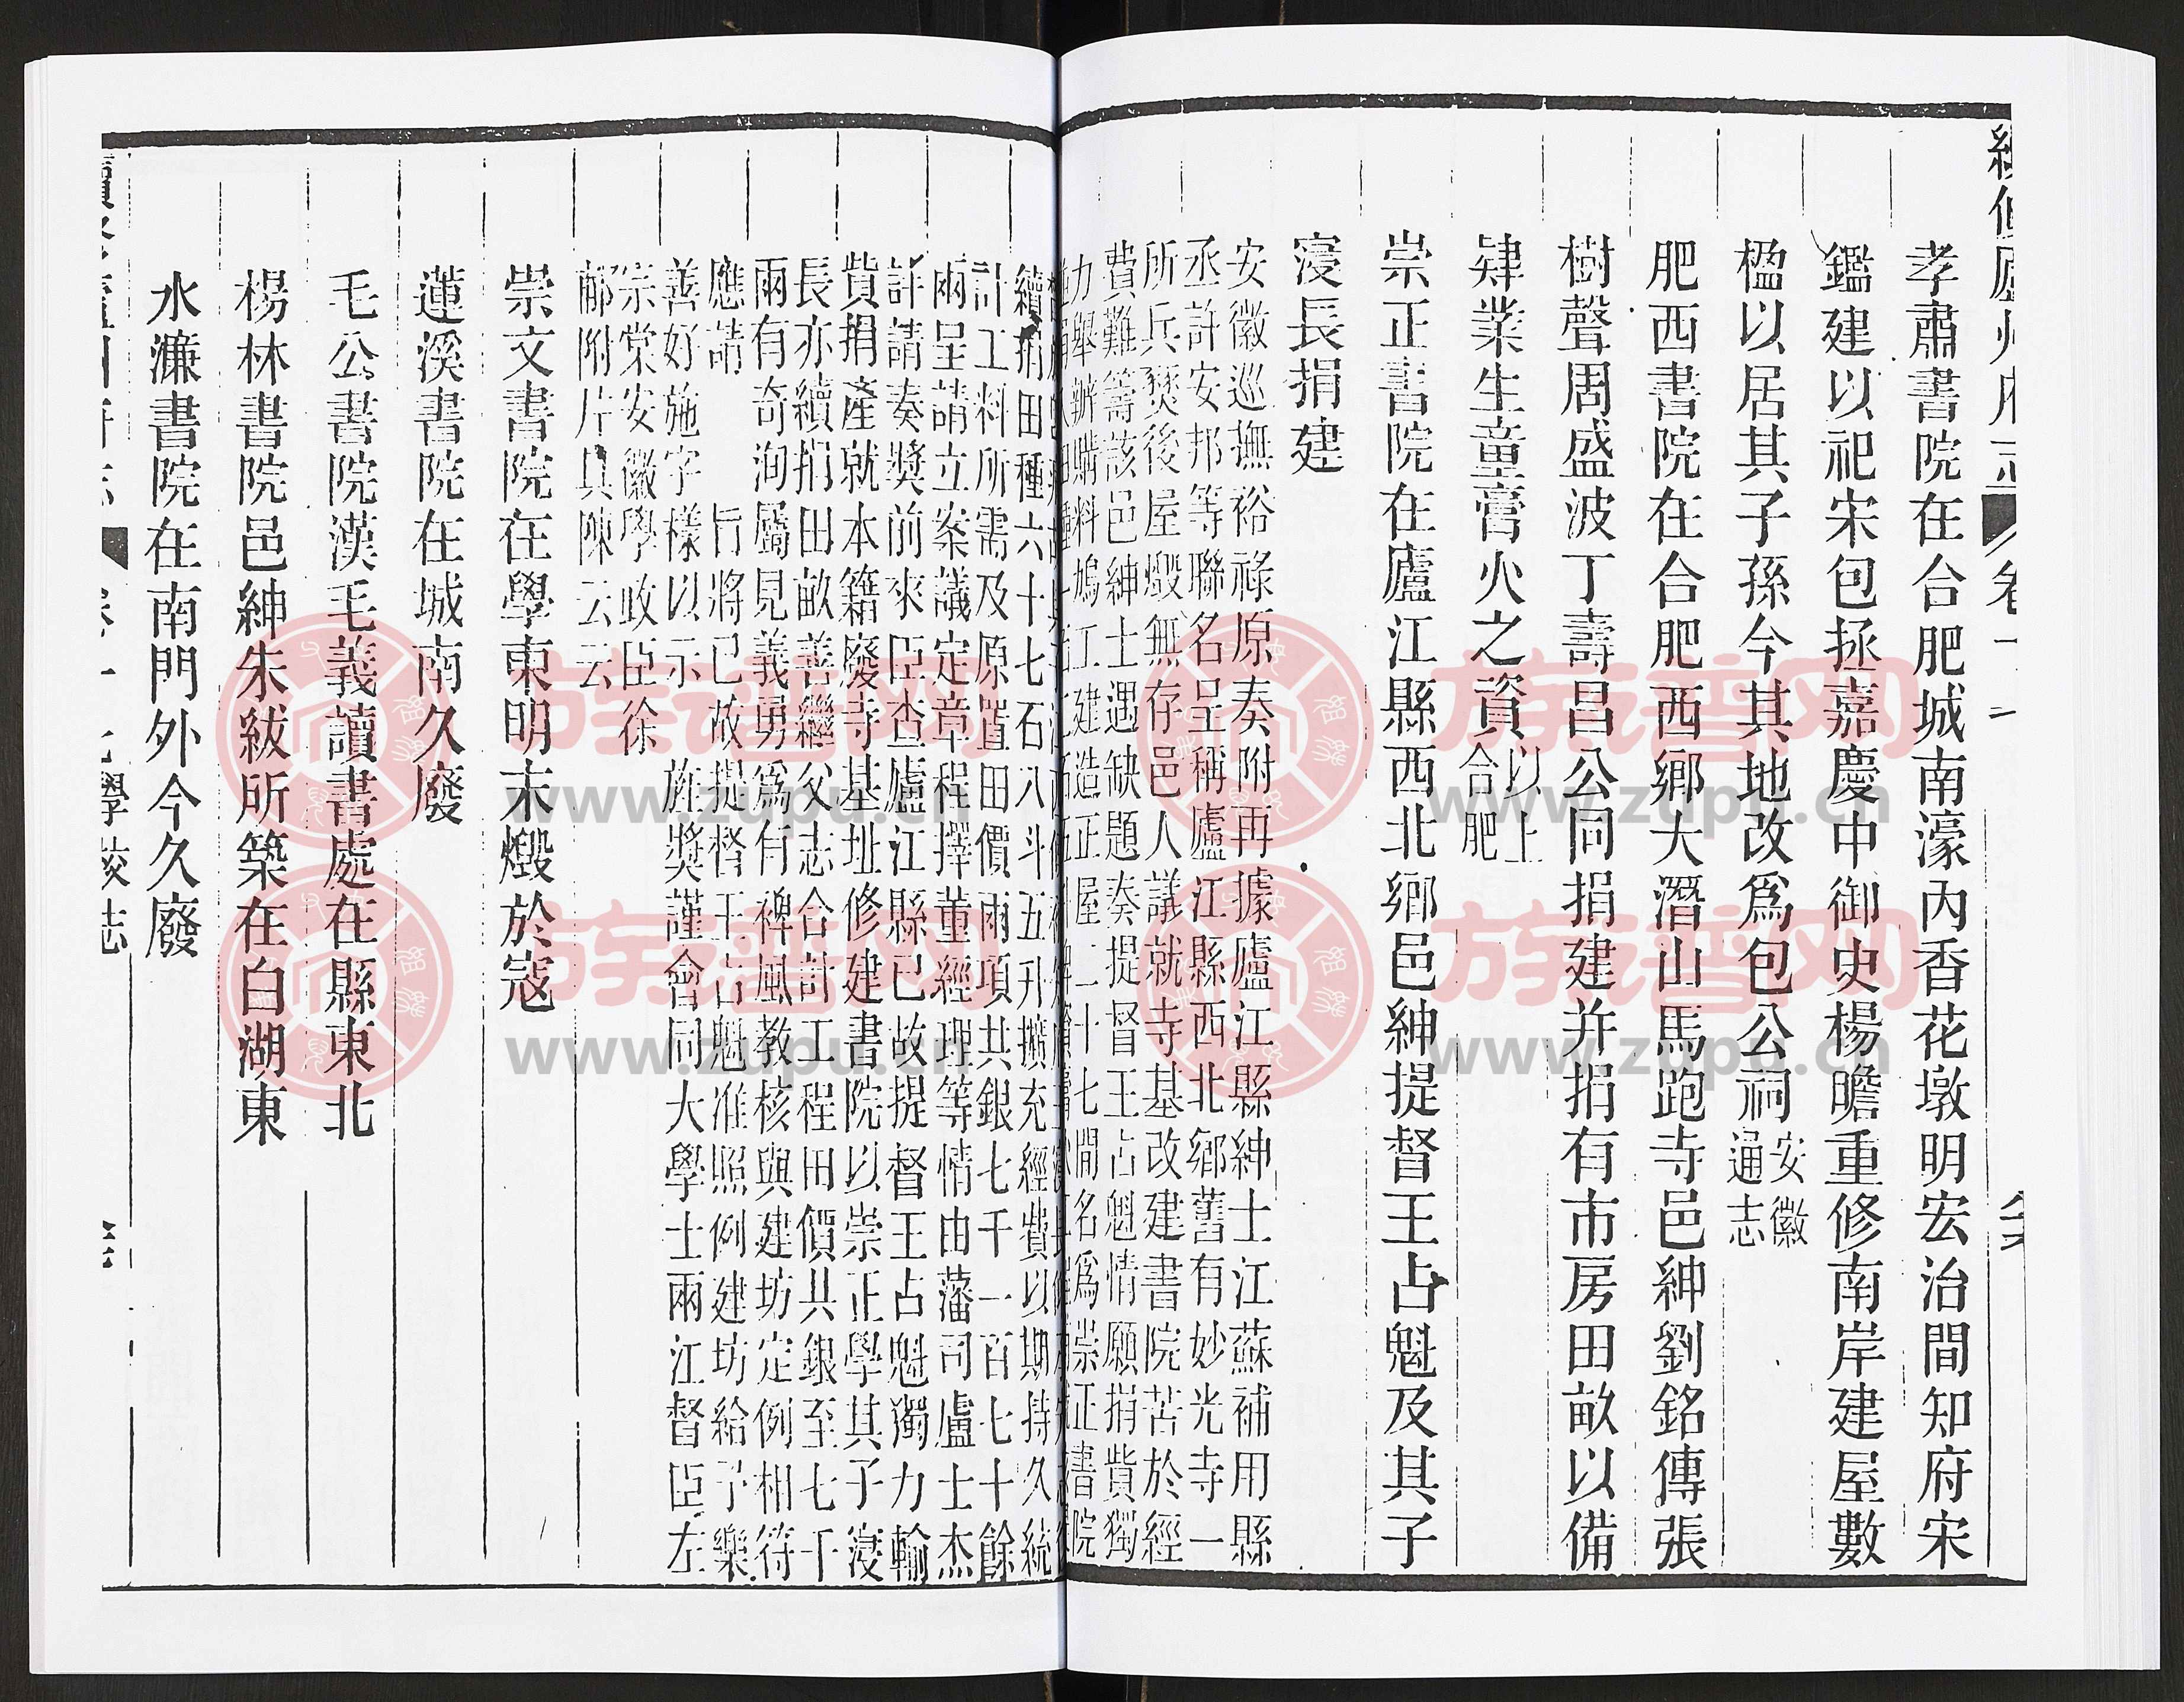 孝肅書院在合肥城南濠內香花墩明宏治間知府宋
鑑建以祀宋包拯嘉慶中御史楊瞻重修南岸建屋數
楹以居其子孫今其地改爲包公祠安徽
通志
肥西書院在合肥西鄉大潛山馬跑寺邑紳劉銘傳張
樹聲周盛波丁壽昌公同捐建并捐有市房田畝以備
肄業生童膏火之資以上
合肥
崇正書院在廬江縣西北鄉邑紳提督王占魁及其子
寖長捐建
安徽巡撫裕祿原奏附再據廬江縣紳士江蘇補用縣
丞許安邦等聯名呈稱廬江縣西北鄉舊有妙光寺一
所兵燹後屋燬無存邑人議就寺基改建書院苦於經
費難籌該邑紳士遇缺題奏提督王占魁情願捐貲獨
力舉辦購料鳩工建造正屋二十七間名爲崇正書院
續捐田種六十七石八斗五升擴充經費以期持久統
計工料所需及原置田價兩項共銀七千一百七十餘
兩呈請立案議定章程擇董經理等情由藩司盧士杰
詳請奏獎前來臣查廬江縣已故提督王占魁獨力輸
貲捐產就本籍廢寺基址修建書院以崇正學其子寖
長亦續捐田畝善繼父志合計工程田價共銀至七千
兩有奇洵屬見義勇爲有裨風教核與建坊定例相符
應請 旨將已故提督王占魁准照例建坊給予樂
善好施字樣以示旌獎謹會同大學士兩江督臣左
宗棠安徽學政臣徐
郙附片具陳云云
崇文書院在學東明末燬於寇
蓮溪書院在城南久廢
毛公書院漢毛義讀書處在縣東北
楊林書院邑紳朱紱所築在白湖東
水濂書院在南門外今久廢
學校志
www.zupu.cn
族譜网
www.zupu.cn
族譜网
www.zupu.cn
族譜网
www.zupu.cn
族譜网